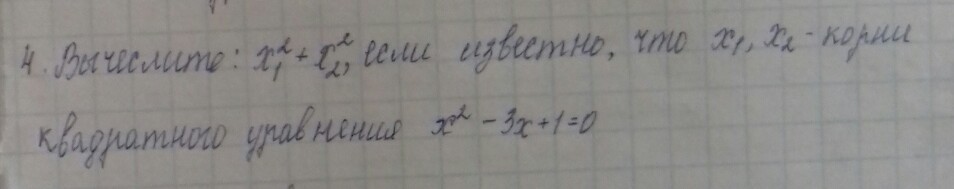 4. Вычеслите: x₁² + x₂², если известно, что x₁, x₂ - корни
квадратного уравнения x² - 3x + 1 = 0